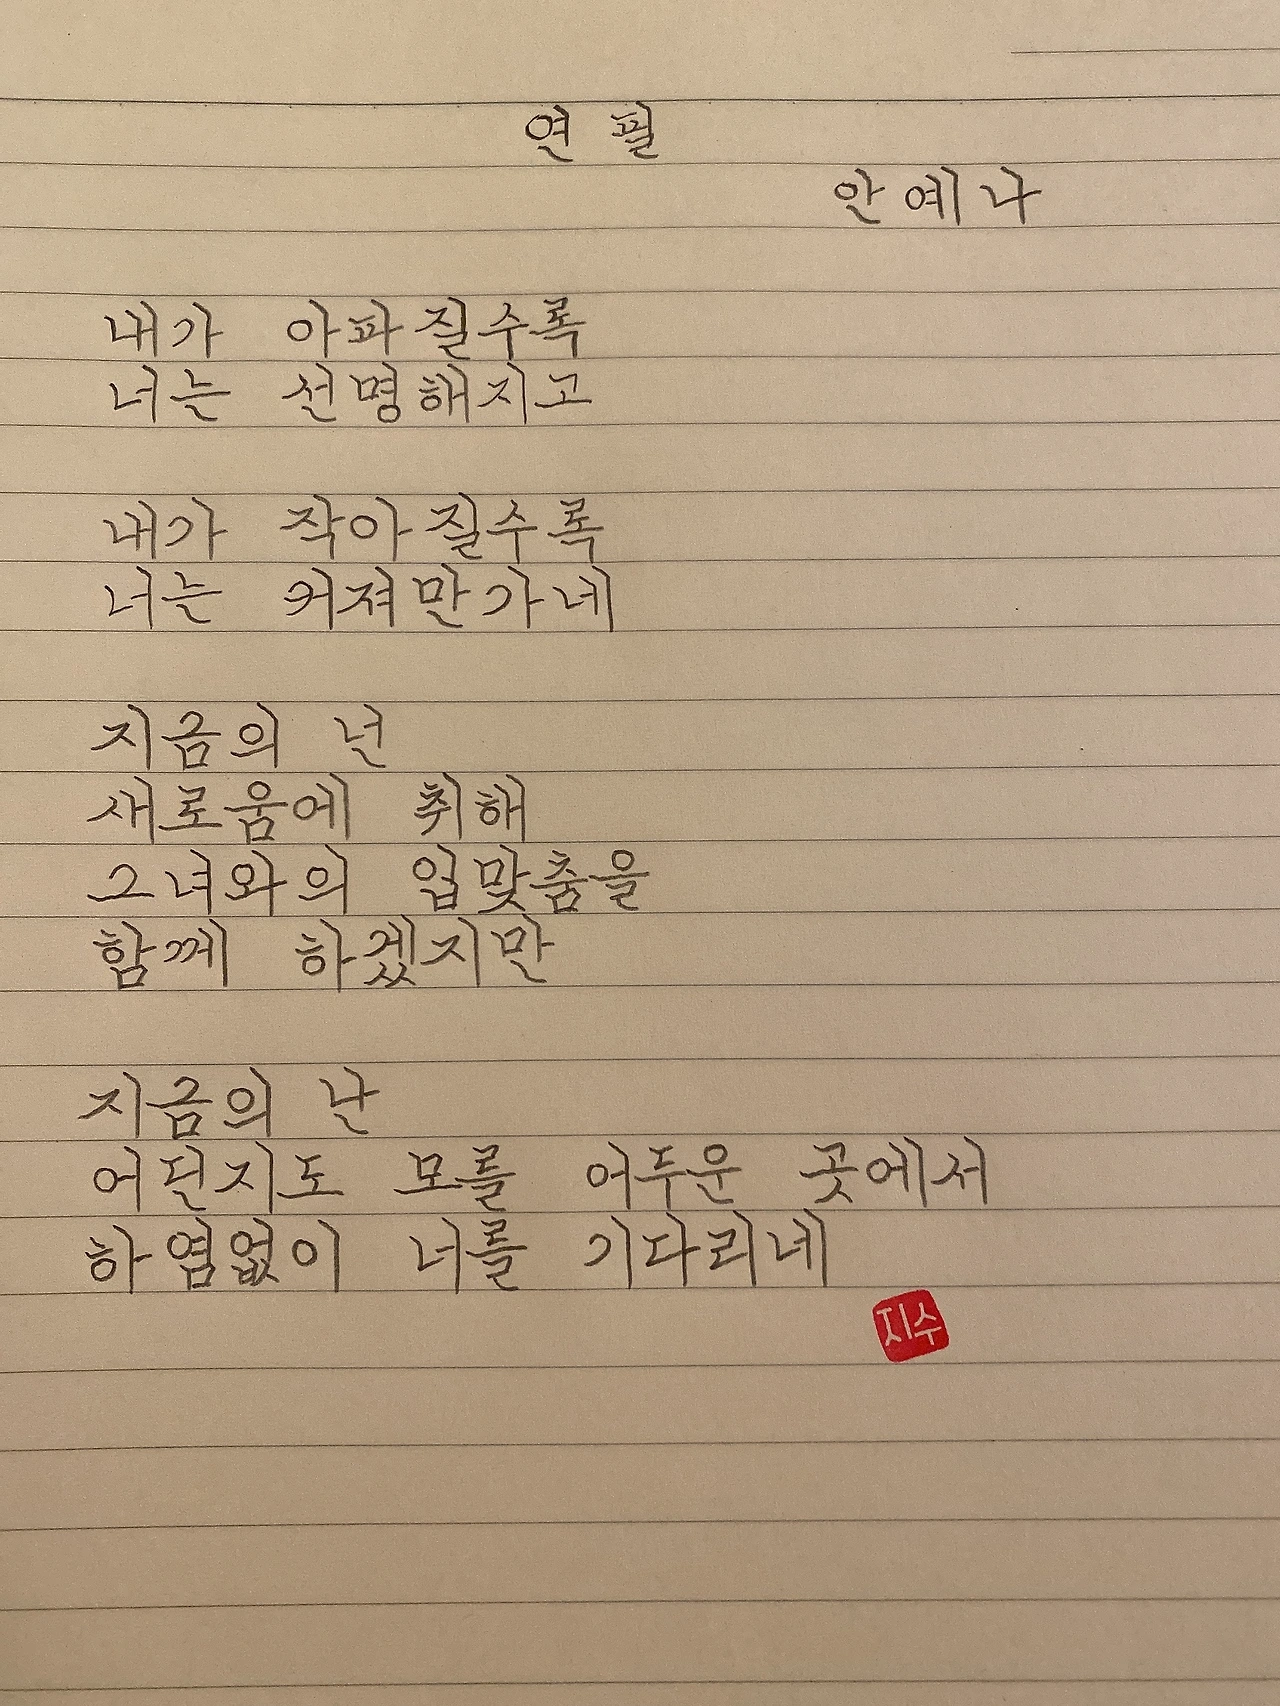 연필
안예나
내가 아파질수록
너는 선명해지고
내가 작아질수록
너는 커져만가네
지금의 넌
새로움에 취해
그녀와의 입맞춤을
함께 하겠지만
지금의 난
어딘지도 모를 어두운 곳에서
하염없이 너를 기다리네
지수